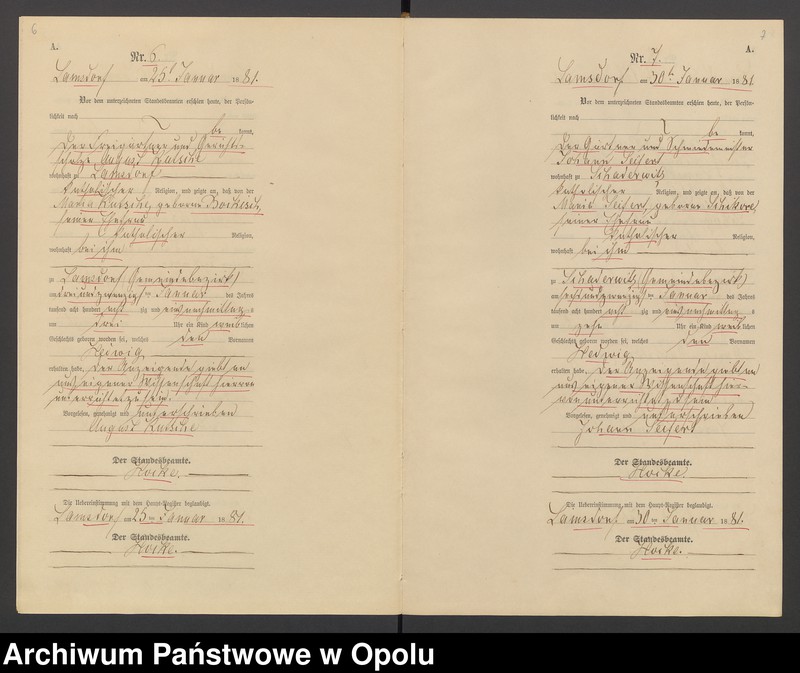 6
A.
Nr. 6.
Lamsdorf am 25t Januar 1881.
Vor dem unterzeichneten Standesbeamten erschien heute, der Persön-
lichkeit nach
be kannt,
der Freigärtner und Gerichts-
scholze August
wohnhaft zu Lamsdorf
katholischer Religion, und zeigte an, daß von der
Maria geborene
seiner Ehefrau
katholischer Religion,
wohnhaft bei ihm
zu Lamsdorf Gemeindebezirk
am drei und zwanzigsten Januar des Jahres
tausend acht hundert acht zig und ein
um drei Uhr ein Kind weiblichen
Geschlechts geboren worden sei, welches den Vornamen
Hedwig
erhalten habe. Der Anzeigende giebt an
aus eigener Wissenschaft hiervon
unterrichtet zu sein.
Vorgelesen, genehmigt und unterschrieben
August
Der Standesbeamte.
Hocke.
Die Uebereinstimmung mit dem Haupt-Register beglaubigt.
Lamsdorf am 25ten Januar 1881.
Der Standesbeamte.
Hocke.
7
A.
Nr. 7.
Lamsdorf am 30ten Januar 1881
Vor dem unterzeichneten Standesbeamten erschien heute, der Persön-
lichkeit nach
be kannt,
der Gärtner und Schmiedemeister
Johann Seifert
wohnhaft zu Schaderwitz
katholischer Religion, und zeigte an, daß von der
Maria Seifert, geborene
seiner Ehefrau
katholischer Religion,
wohnhaft bei ihm
zu Schaderwitz Gemeindebezirk
am sechsundzwanzigsten Januar des Jahres
tausend acht hundert acht zig und ein
um Uhr ein Kind weiblichen
Geschlechts geboren worden sei, welches den Vornamen
Hedwig
erhalten habe. Der Anzeigende giebt an
aus eigener Wissenschaft hier-
von unterrichtet zu sein
Vorgelesen, genehmigt und unterschrieben
Johann Seifert
Der Standesbeamte.
Hocke.
Die Uebereinstimmung mit dem Haupt-Register beglaubigt.
Lamsdorf am 30ten Januar 1881.
Der Standesbeamte.
Hocke.
Archiwum Państwowe w Opolu